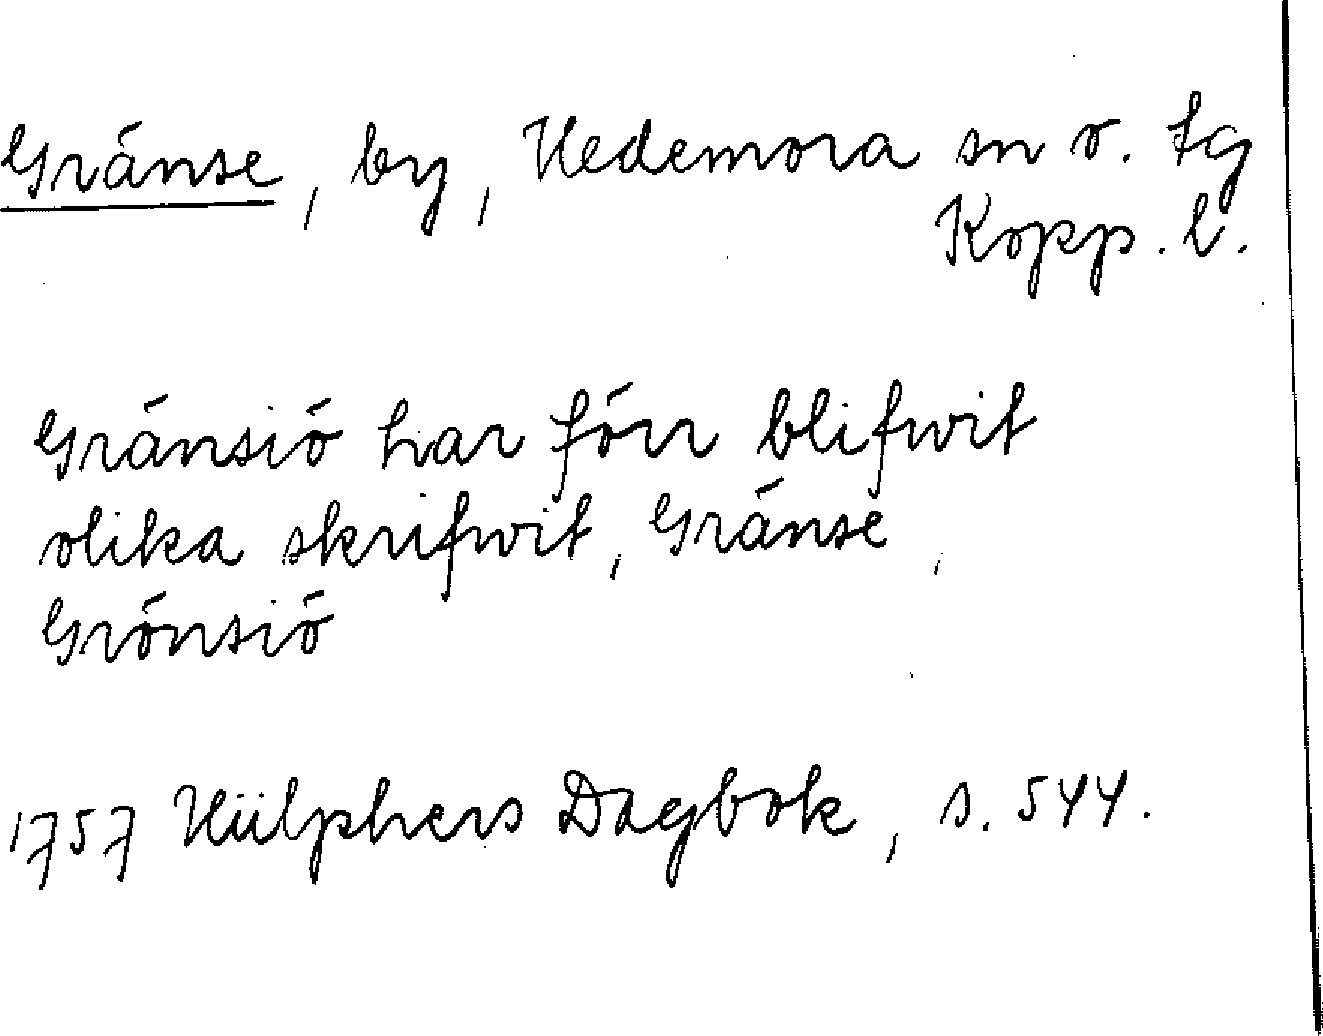 Gränse, by, Hedemora sn o. tg
Kopp. l.
Gränsiö har förr blifwit
olika skrifwit, Gränse,
Grönsiö
1757 Hülphers Dagbok, s. 544.